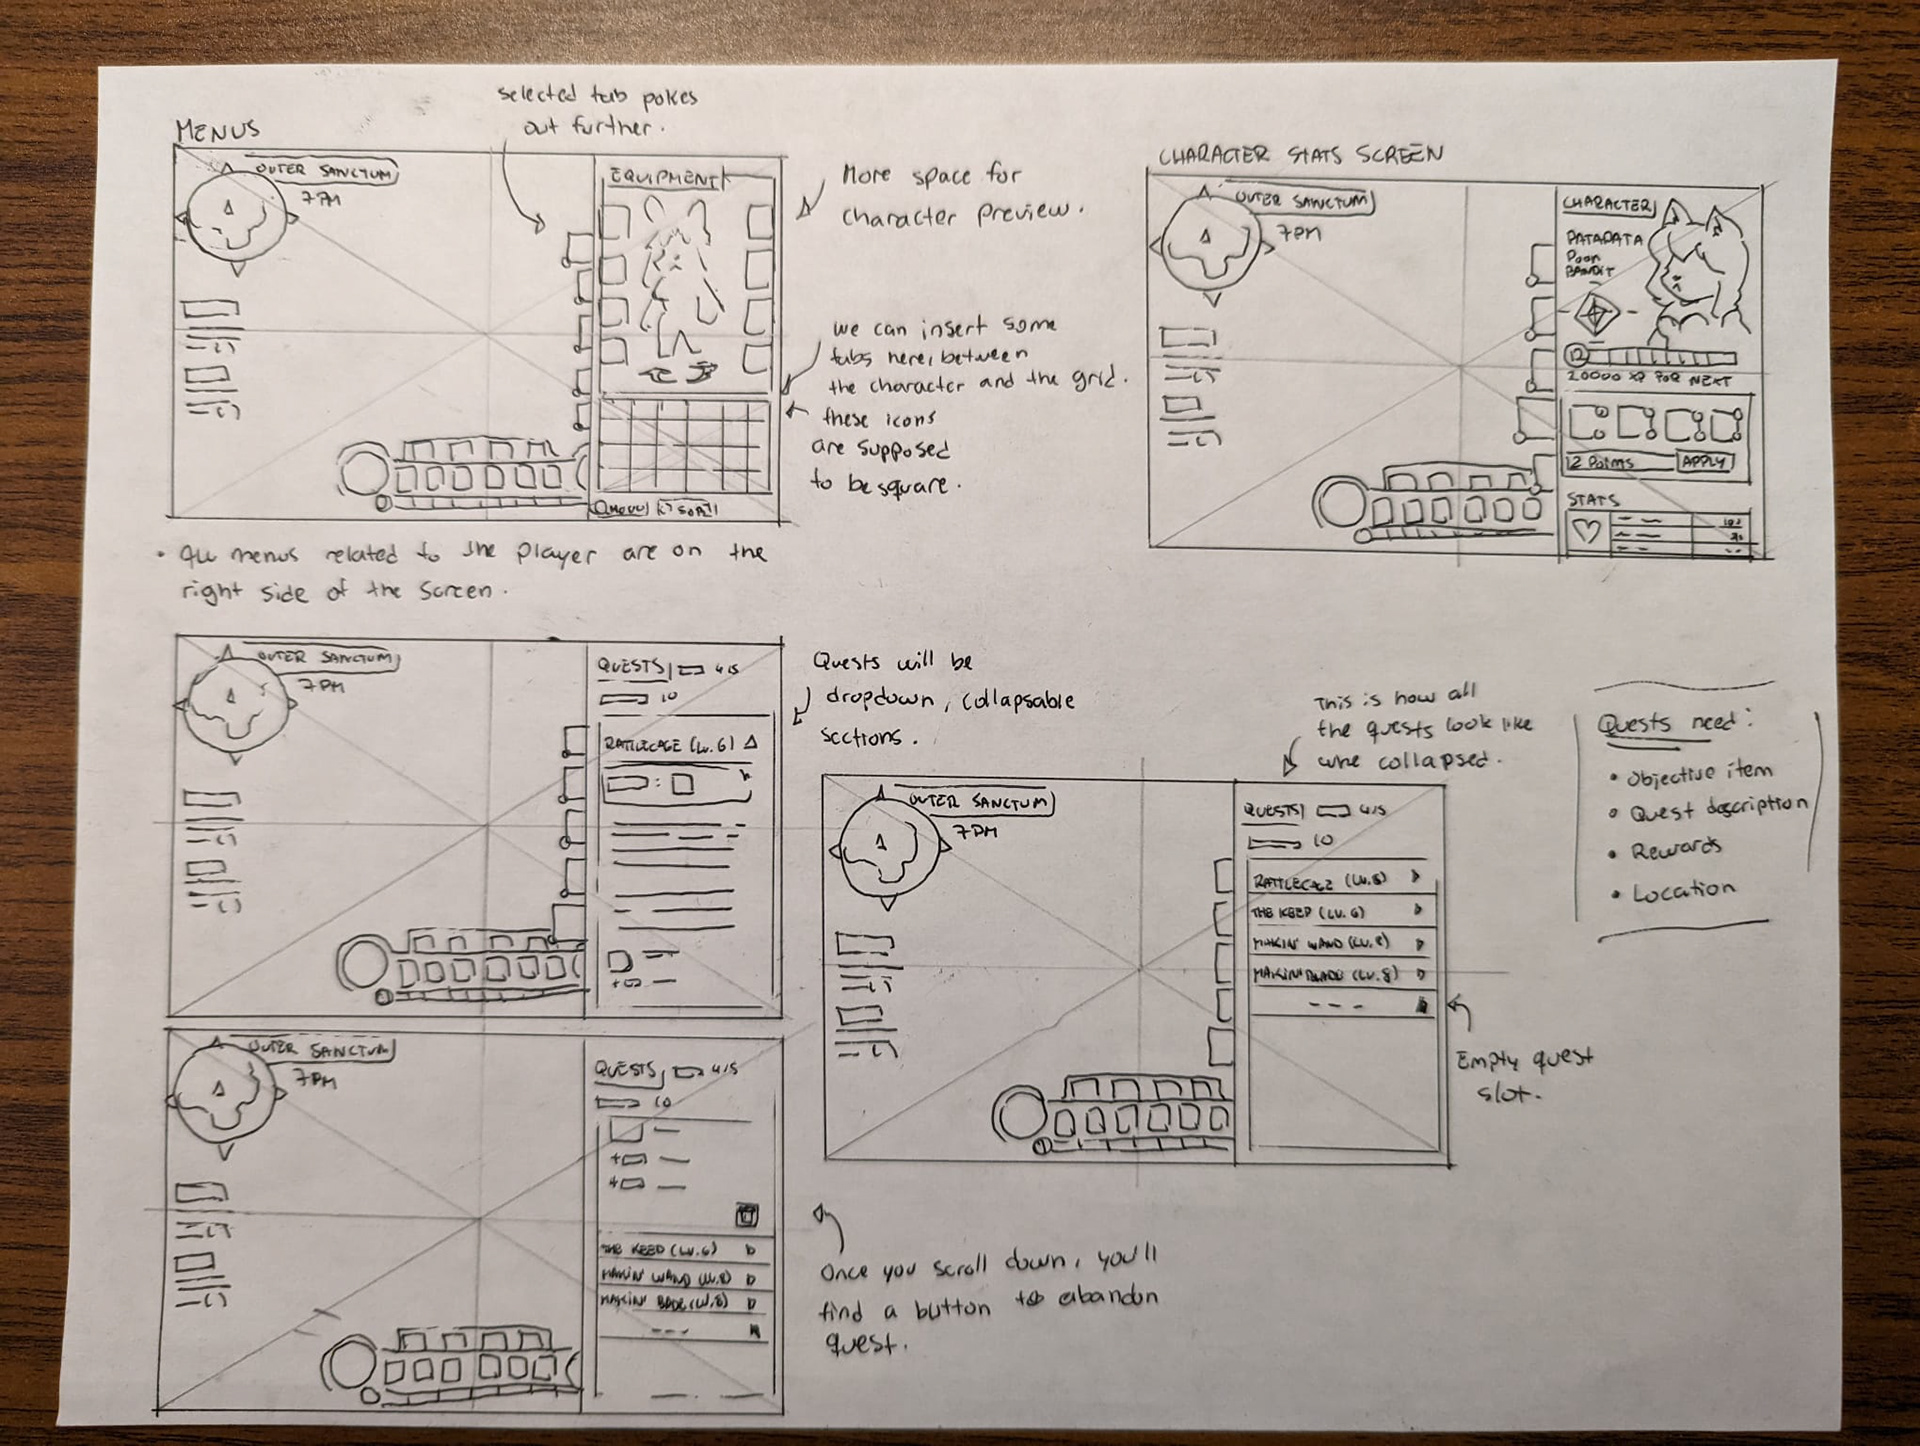 MENUS
selected tab pokes
out further.
OUTER SANCTUM
7PM
EQUIPMENT
More space for
character preview.
we can insert some
tabs here, between
the character and the grid.
these icons
are supposed
to be square.
SORT
• All menus related to the player are on the
right side of the screen.
CHARACTER STATS SCREEN
OUTER SANCTUM
7PM
CHARACTER
PATAPATA
Poor
BANDIT
12
20000 XP FOR NEXT
12 Points
APPLY
STATS
OUTER SANCTUM
7PM
QUESTS 4/5
10
RATTLECAGE (Lv. 6)
Quests will be
dropdown, collapsable
sections.
This is how all
the quests look like
whe collapsed.
OUTER SANCTUM
7PM
QUESTS 4/5
10
RATTLECAGE (Lv. 8)
THE KEEP (LV. 6)
MAKIN' WAND (LV. 8)
MAKIN' BLADE (LV. 8)
---
Empty quest
slot.
Quests need:
• Objective item
• Quest description
• Rewards
• Location
OUTER SANCTUM
7PM
QUESTS 4/5
10
THE KEEP (LV. 6)
MAKIN' WAND (LV. 8)
---
Once you scroll down, you'll
find a button to abandon
quest.